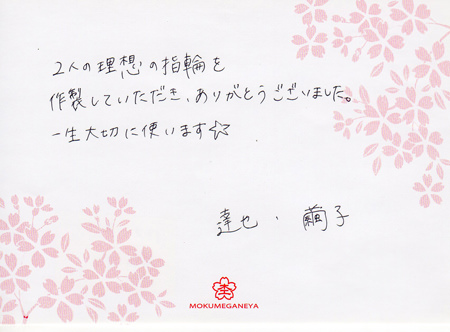 2人の理想の指輪を
作製していただき、ありがとうございました。
一生大切に使います☆
達也・繭子
MOKUMEGANEYA